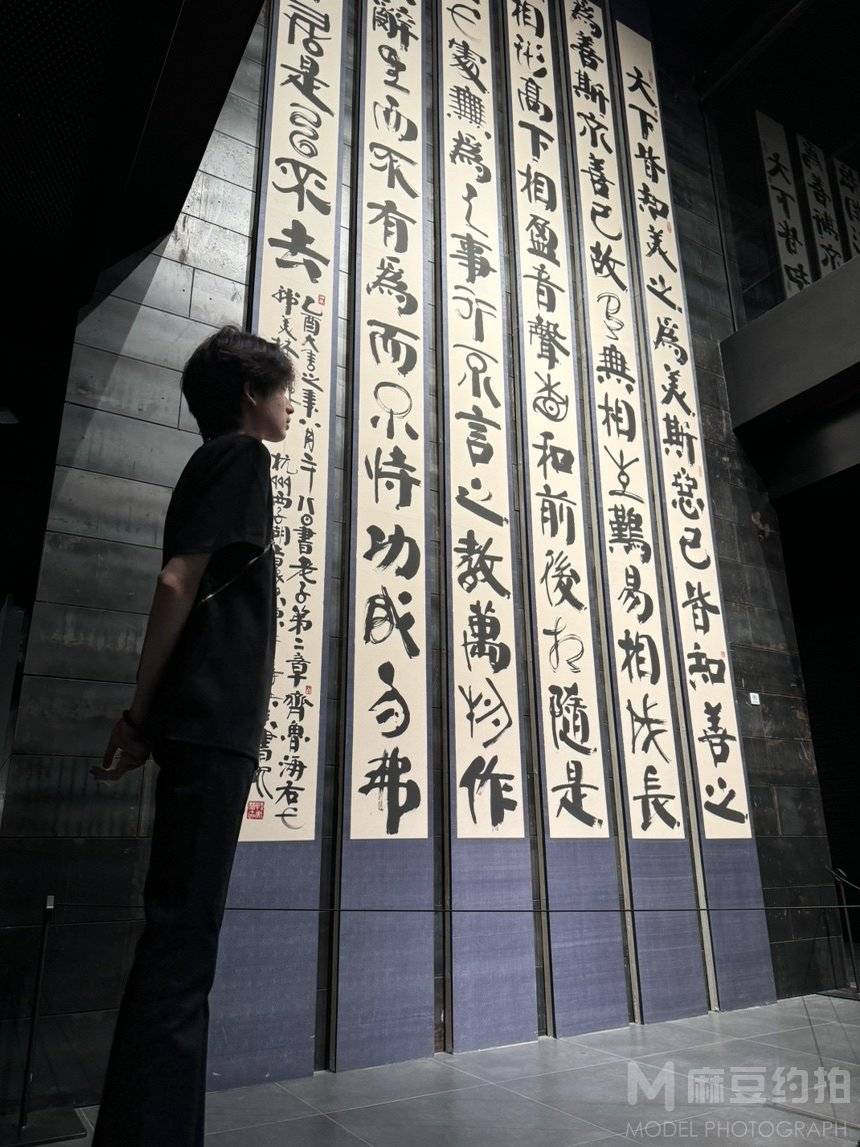 天下皆知美之為美斯惡已皆知善之
為善斯不善已故有無相生難易相成長
相形高下相盈音聲相和前後相隨是
處無為之事行不言之教萬物作
辭生而不有為而不恃功成而弗
居是以不去
乙酉大之年八月二十八日書老子第二章齊魯海右
韓美林杭州西子湖書
天下皆知
為善斯不
麻豆约拍
MODEL PHOTOGRAPH